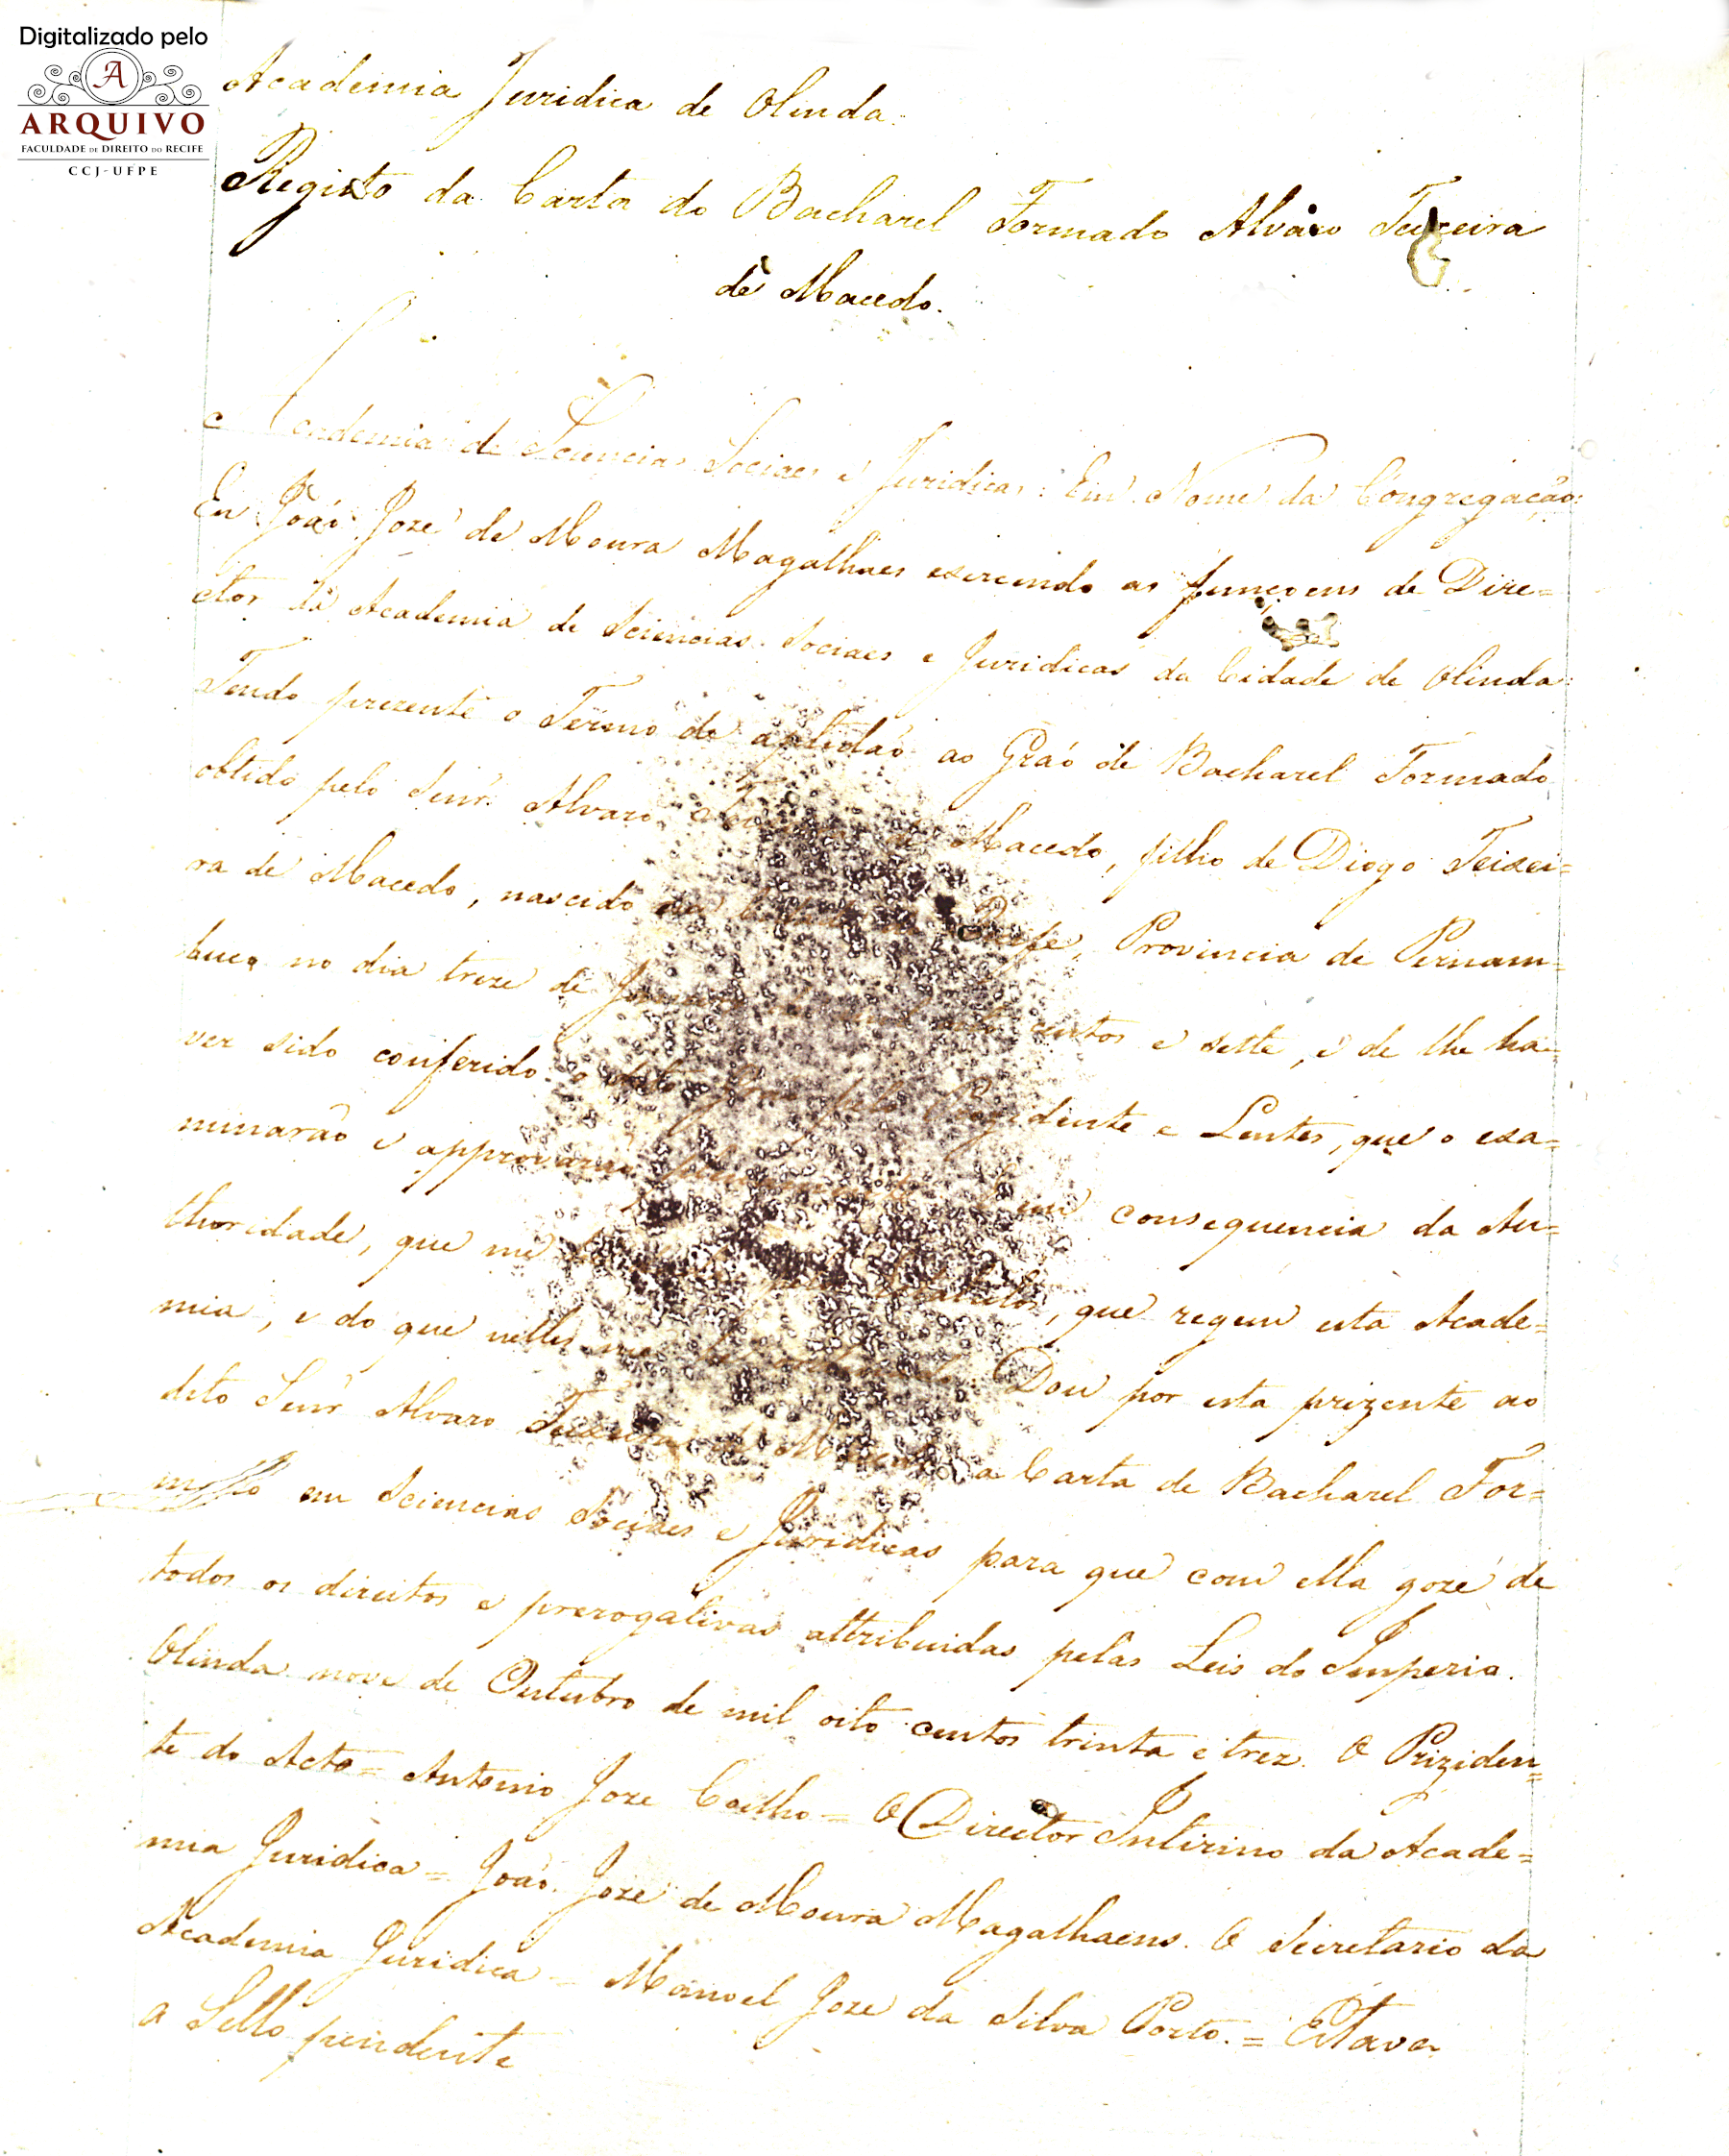 Digitalizado pelo
A
ARQUIVO
FACULDADE DE DIREITO DO RECIFE
CCJ-UFPE
Academia Juridica de Olinda.
Registo da Carta do Bacharel Formado Alvaro Teixeira
de Macedo.
Academia de Sciencias Sociaes e Juridicas: Em Nome da Congregação:
Eu João Joze de Moura Magalhaes exercendo as funçoens de Dire=
ctor da Academia de Sciencias Sociaes e Juridicas da Cidade de Olinda:
Tendo prezente o Termo de aptidaõ ao Graó de Bacharel Formado
obtido pelo Senr. Alvaro Macedo, filho de Diogo Teixei=
ra de Macedo, nascido Recife, Provincia de Pernam=
buco no dia treze de centos e sette, e de lhe ha=
ver sido conferido dente e Lentes, que o exa=
minaraõ e approvaraõ em consequencia da Au=
thoridade, que me Estatutos, que regem esta Acade=
mia, e do que nelles Dou por esta prizente ao
dito Senr Alvaro Teixeira de Macedo a Carta de Bacharel For=
mado em Sciencias Sociaes e Juridicas para que com ella goze de
todos os direitos e prerogativas attribuidas pelas Leis do Imperio.
Olinda nove de Outubro de mil oito centos trinta e trez. O Priziden=
te do Acto= Antonio Joze Coelho= O Director Intirino da Acade=
mia Juridica= João Joze de Moura Magalhaens. O Secretario da
Academia Juridica= Manoel Joze da Silva Porto.= Estava
o Sello pendente